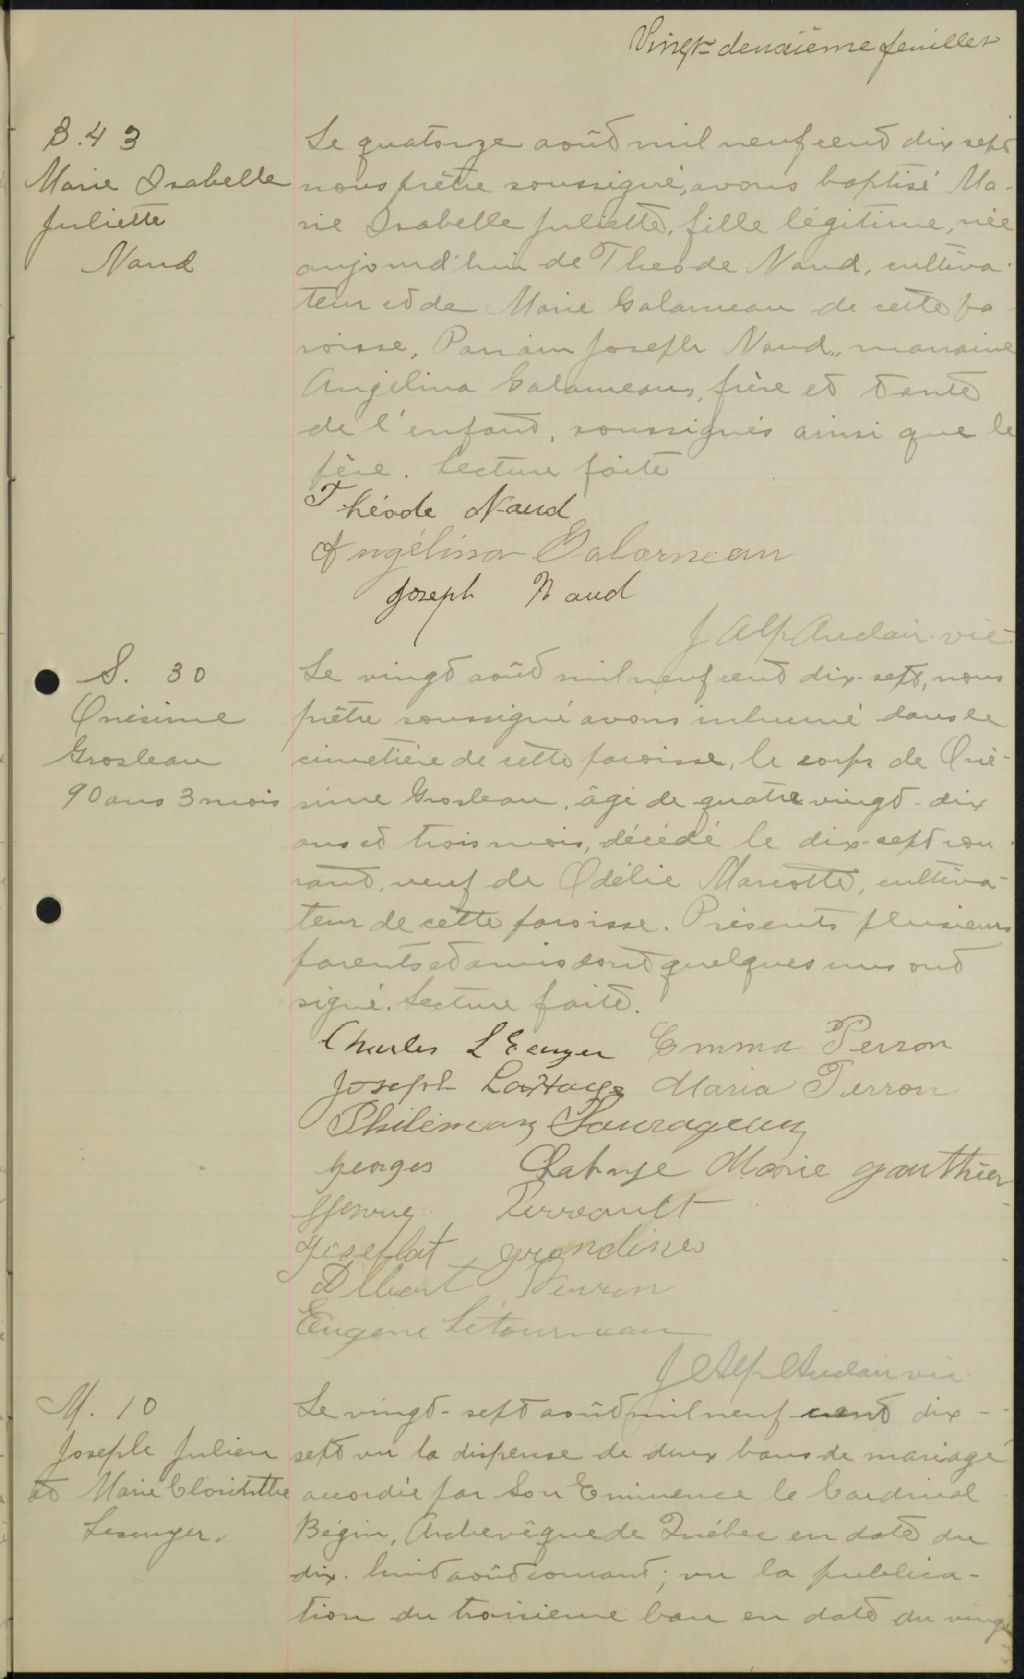 Vingt-deuxième feuillet
B. 43
Marie Isabelle
Juliette
Naud
Le quatorze août mil neuf cent dix sept
nous prêtre soussigné, avons baptisé Ma-
rie Isabelle Juliette, fille légitime, née
aujourd'hui de Théode Naud, cultiva-
teur et de Marie Galarneau de cette pa-
roisse, Parrain Joseph Naud, marraine
Angélina Galarneau, frère et tante
de l'enfant, soussignés ainsi que le
père. Lecture faite
Théode Naud
Angélina Galarneau
Joseph Naud
J Alp Auclair vic.
S. 30
Onésime
Grosleau
90 ans 3 mois
Le vingt août mil neuf cent dix-sept, nous
prêtre soussigné avons inhumé dans le
cimetière de cette paroisse, le corps de Oné-
sime Grosleau, âgé de quatre vingt-dix
ans et trois mois, décédé le dix-sept cou-
rant, veuf de Odélie Marcotte, cultiva-
teur de cette paroisse. Présents plusieurs
parents et amis dont quelques uns ont
signé. Lecture faite.
Charles Emma Perron
Joseph Maria Perron
Philémon Sauvageau
Georges Marie Gauthier
Perreault
Josephat Grondines
Albert Perron
Eugène Létourneau
J Alp Auclair vic.
M. 10
Joseph Julien
et Marie
Le vingt-sept août mil neuf cent dix-
sept vu la dispense de deux bans de mariage
accordée par Son Eminence le Cardinal
Bégin, Archevêque de Québec en date du
dix-huit août courant; vu la publica-
tion du troisième ban en date du vingt